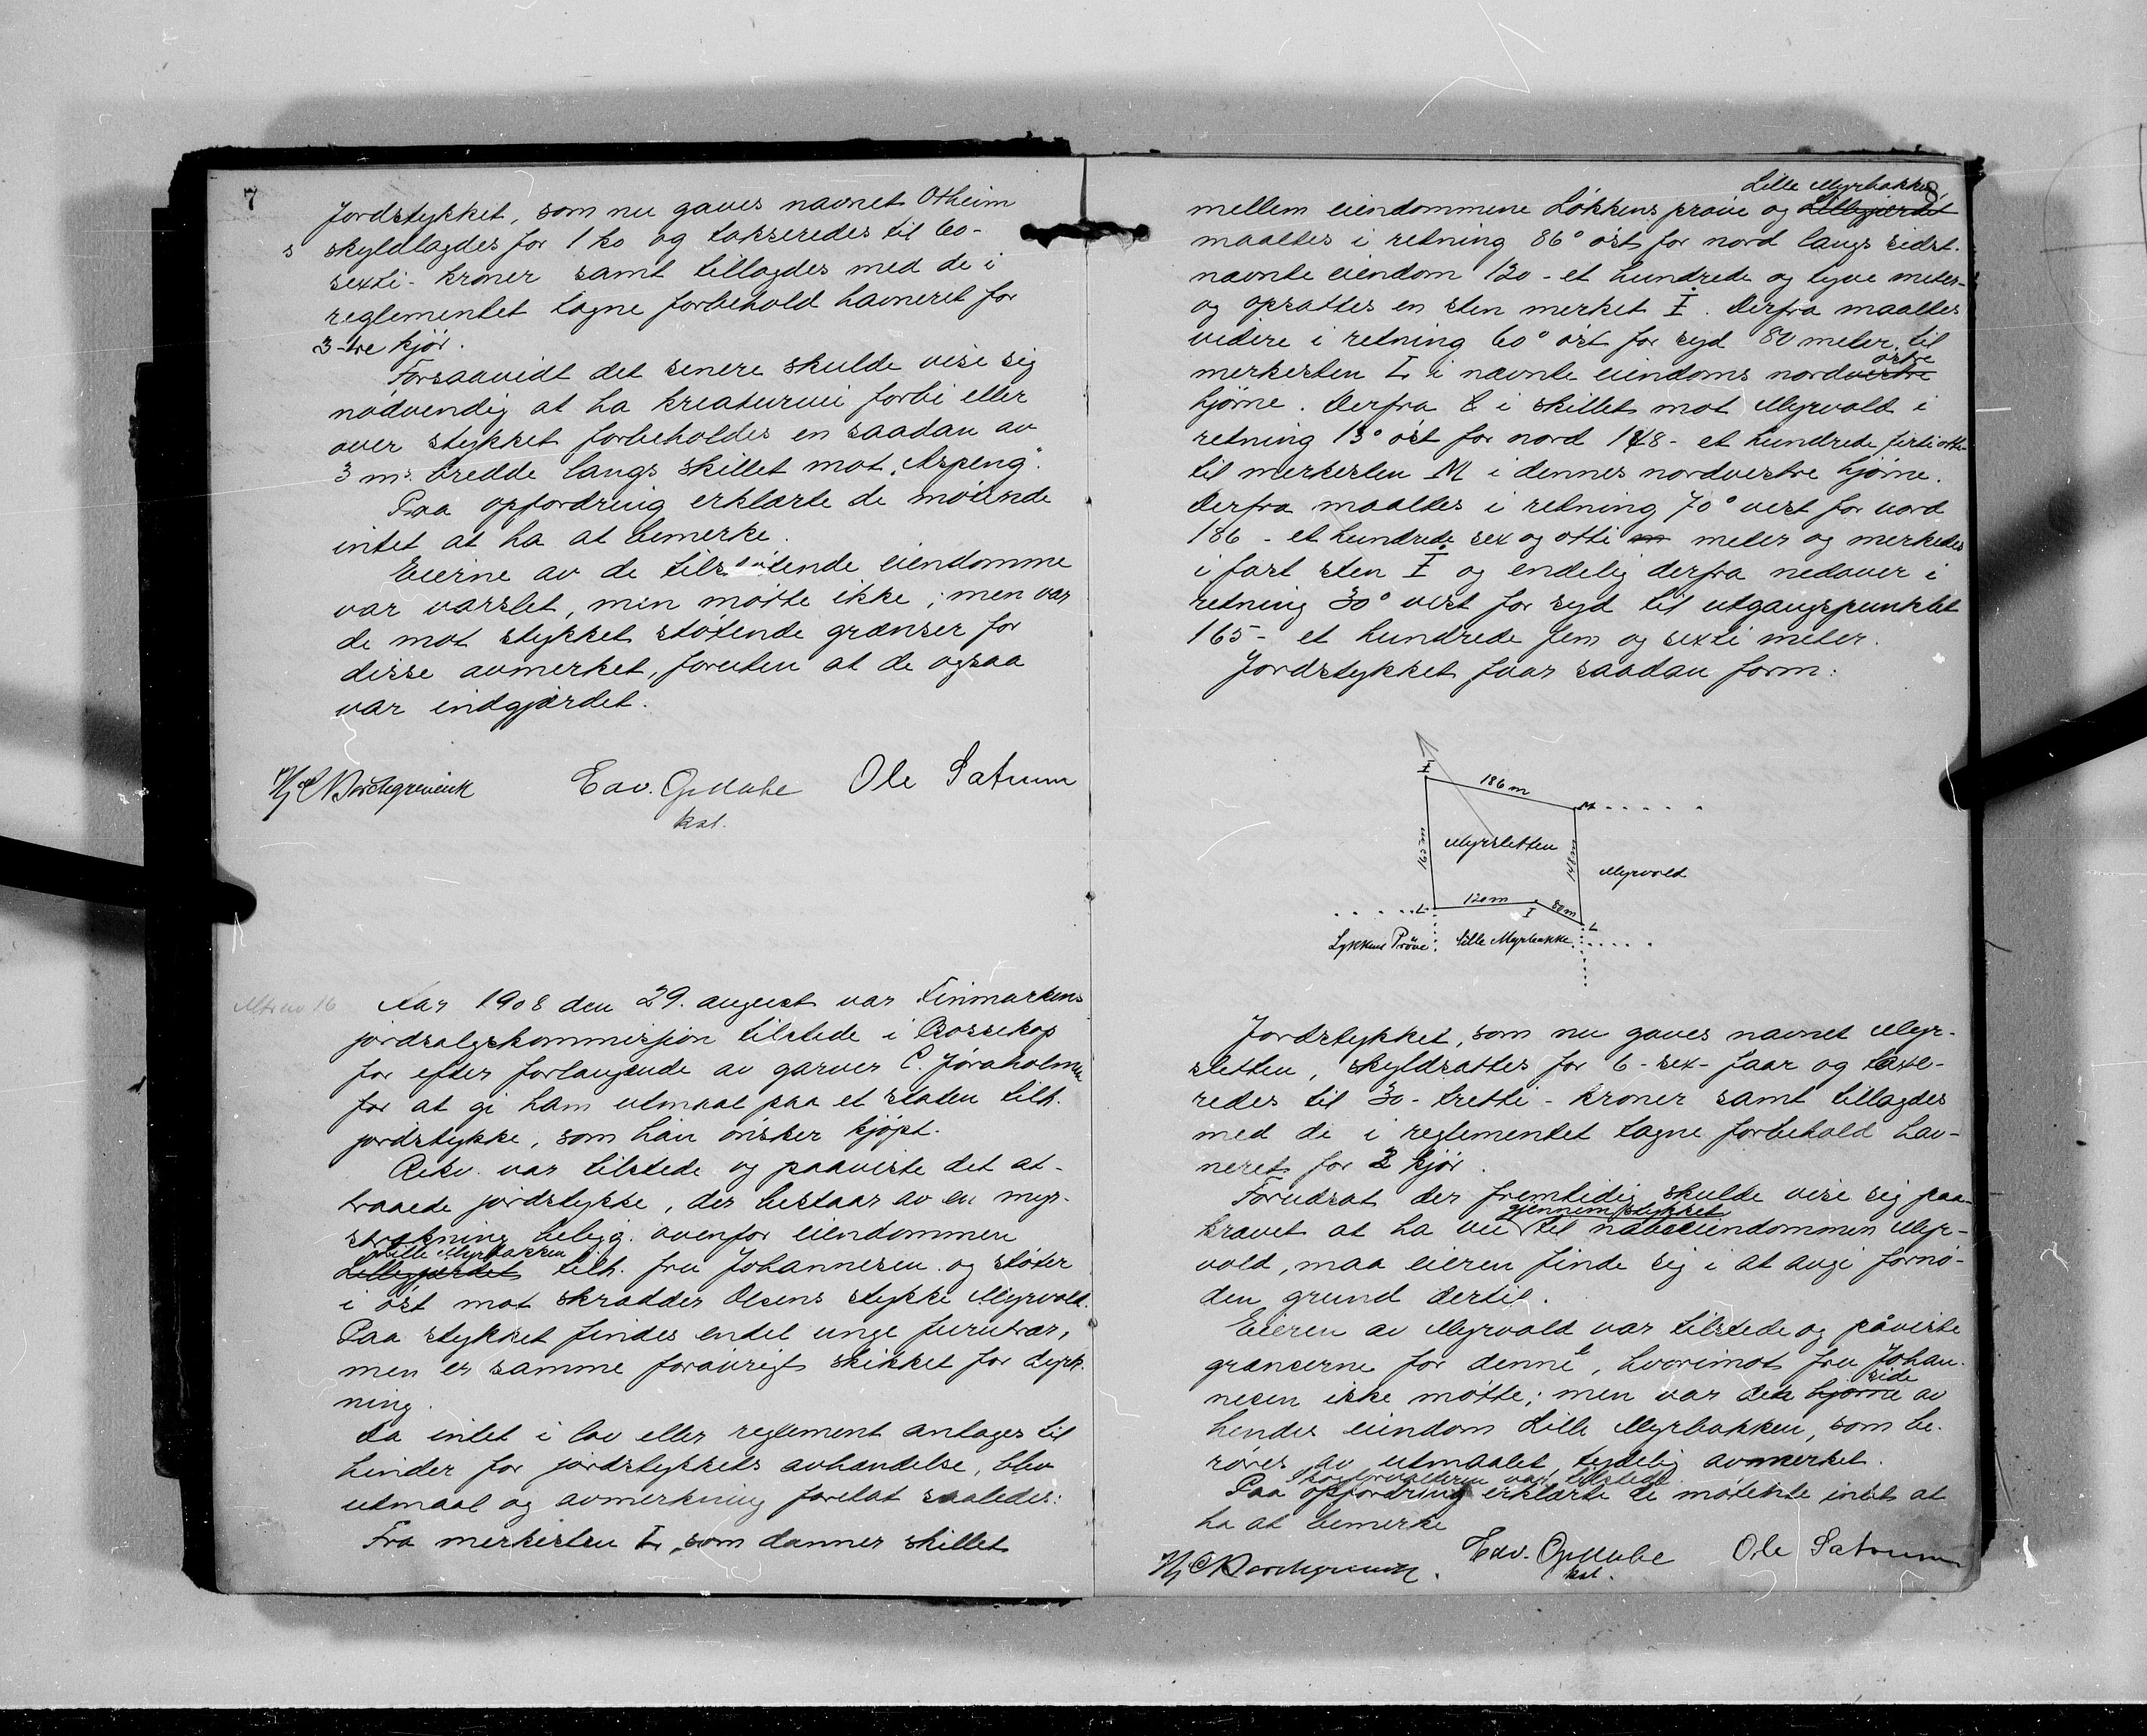 7
Jordstykket, som nu gaves navnet Otheim
s skyldlagdes for 1 ko og takseredes til 60-
sexti- kroner samt tillagdes med de i
reglementet tagne forbehold havneret for
3-tre kjör.
Forsaavidt det senere skulde vise sig
nødvendig at ha kreaturvei forbi eller
over stykket forbeholdes en saadan av
3 m's bredde langs skillet mot "Aspeng".
Paa opfordring erklærte de møtende
intet at ha at bemerke.
Eierne av de tilstøtende eiendomme
var varslet, men møtte ikke; men var
de mot stykket støtende grænser for
disse avmerket, foruten at de ogsaa
var indgjærdet.
Edv. Ole Sætrum
kst.
Aar 1908 den 29. august var Finmarkens
jordsalgskommisjon tilstede i Bossekop
for efter forlangende av garver C. Jøraholmen
for at gi ham utmaal paa et staten tilh.
jordstykke, som han ønsker kjøpt.
Rekv. var tilstede og paaviste det at-
traaede jordstykke, der bestaar av en myr-
strækning belig. ovenfor eiendommen
Lille Myrbakken
Lillegjærdet tilh. fru Johannesen og støter
i øst mot skrædder Olsens stykke Myrvold.
Paa stykket findes endel unge furutrær,
men er samme forøvrigt skikket for dyrk-
ning.
Da intet i lov eller reglement antages til
hinder for jordstykkets avhændelse, blev
utmaal og avmerkning foretat saaledes:
Fra merkesten L, som danner skillet
8
Lille Myrbakken
mellem eiendommene Løkkens prøve og Lillegjærdet
maaltes i retning 86° øst for nord langs sidst-
nævnte eiendom 120 - et hundrede og tyve meter-
og opsattes en sten merket I. Derfra maaltes
videre i retning 60° øst for syd 80 meter til
østre
merkesten L i nævnte eiendoms nordvestre
hjørne. Derfra i skillet mot Myrvold i
retning 13° øst for nord 148 - et hundrede firtiotte-
til merkesten M i dennes nordvestre hjørne.
Derfra maaltes i retning 70° vest for nord
186 - et hundrede sex og otti m meter og merkedes
i fast sten I og endelig derfra nedover i
retning 30° vest for syd til utgangspunktet
165 - et hundrede fem og sexti meter.
Jordstykket faar saadan form:
I
186 m
M
165 m
Myrsletten
148 m
Myrvold
120 m
80 m
L
I
L
Lykkens Prøve
Lille Myrbakke
Jordstykket, som nu gaves navnet Myr-
sletten, skyldsattes for 6 - sex - faar og taxe-
redes til 30 - tretti - kroner samt tillagdes
med de i reglementet tagne forbehold hav-
neret for 2 kjør.
Forudsat der fremtidig skulde vise sig paa-
gjennem stykket
krævet at ha vei til naboeiendommen Myr-
vold, maa eieren finde sig i at avgi fornø-
den grund dertil.
Eieren av Myrvold var tilstede og påviste
grænserne for denne, hvorimot fru Johan-
side
nesen ikke møtte; men var den hjørne av
hendes eiendom Lille Myrbakken, som be-
røres av utmaalet tydelig avmerket.
Skogforvalteren var tilstede
Paa opfordring erklærte de møtende intet at
ha at bemerke
Edv. Ole Sætrum
kst.